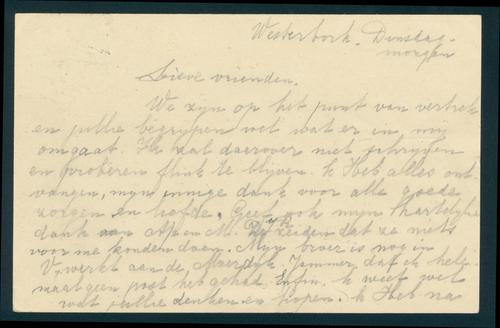 Westerbork. Dinsdag-
morgen
Lieve vrienden.
We zijn op het punt van vertrek
en jullie begrijpen wel wat er in mij
omgaat. Ik zal daarover niet schrijven
en probeeren flink te blijven. Ik heb alles ont-
vangen, mijn innige dank voor alle goede
zorgen en liefde. Geef ook mijn hartelijke
dank aan A. en M. zeiden dat ze niets
voor me konden doen. Mijn broer is nog in
V. werkt aan de Moerdijk. Jammer dat ik hele-
maal geen post het gehad. Enfin, ik weet wel
wat jullie denken en hopen. Ik heb na